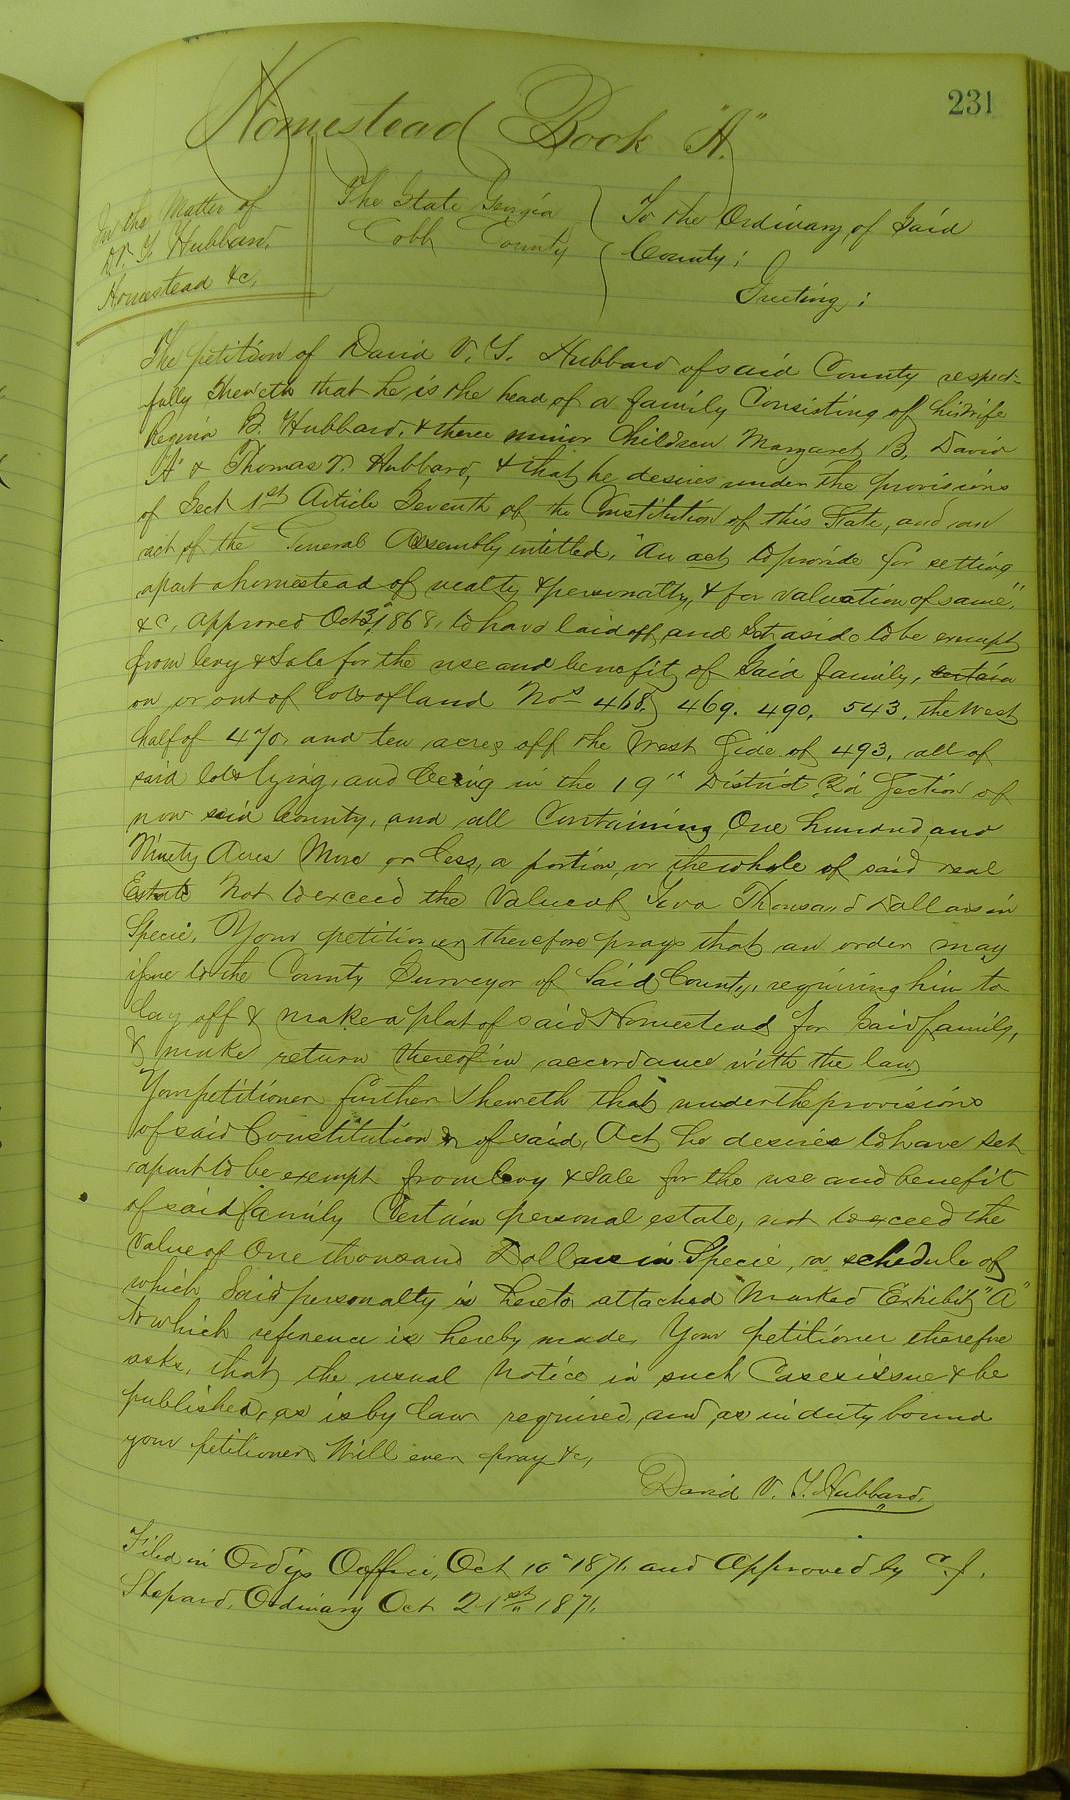 231
Homestead Book "A"
In the Matter of
D. V. T. Hubbard.
Homestead &c.
The State Georgia
Cobb County
To the Ordinary of Said
County;
Greeting:
The petition of David V. T. Hubbard of said County respect-
fully sheweth that he is the head of a family Consisting of his wife
Regina B. Hubbard, & three minor Children Margaret B, David
A & Thomas V. Hubbard, & that he desires under the provisions
of Sect 1st Article Seventh of the Constitution of this State, and an
act of the General Assembly intitled, "An act to provide for setting
apart a homestead of realty & personalty, & for valuation of same,"
&c, approved Oct 3, 1868, to have laid off and Set aside to be exempt
from levy & Sale for the use and benefit of Said family, certain
on or out of Lots of land Nos 468, 469. 490, 543, the West
half of 470, and ten acres off the West Side of 493, all of
said lots lying, and being in the 19" District, 2d Section of
now said County, and all Containing One hundred and
Ninety Acres More or less, a portion, or the whole of said real
Estate Not to exceed the Value of Two Thousand Dollars in
Specie, Your petitioner therefore prays that an order may
issue to the County Surveyor of Said County, requiring him to
lay off & make a plat of said Homestead for Said family,
& make return thereof in accordance with the law
Your petitioner further Sheweth that under the provisions
of said Constitution & of said Act he desires to have set
apart to be exempt from levy & Sale for the use and benefit
of said family Certain personal estate, not to exceed the
Value of One thousand Dollars in Specie, a schedule of
which Said personalty is hereto attached Marked Exhibit "A"
to which reference is hereby made, Your petitioner therefore
asks, that the usual Notice in such Cases issue & be
published, as is by law required, and as in duty bound
your petitioner Will ever pray &c,
David V. T. Hubbard,
Filed in Ordys Office, Oct 10" 1871, and Approved by C. J.
Shepard, Ordinary Oct 21st 1871.